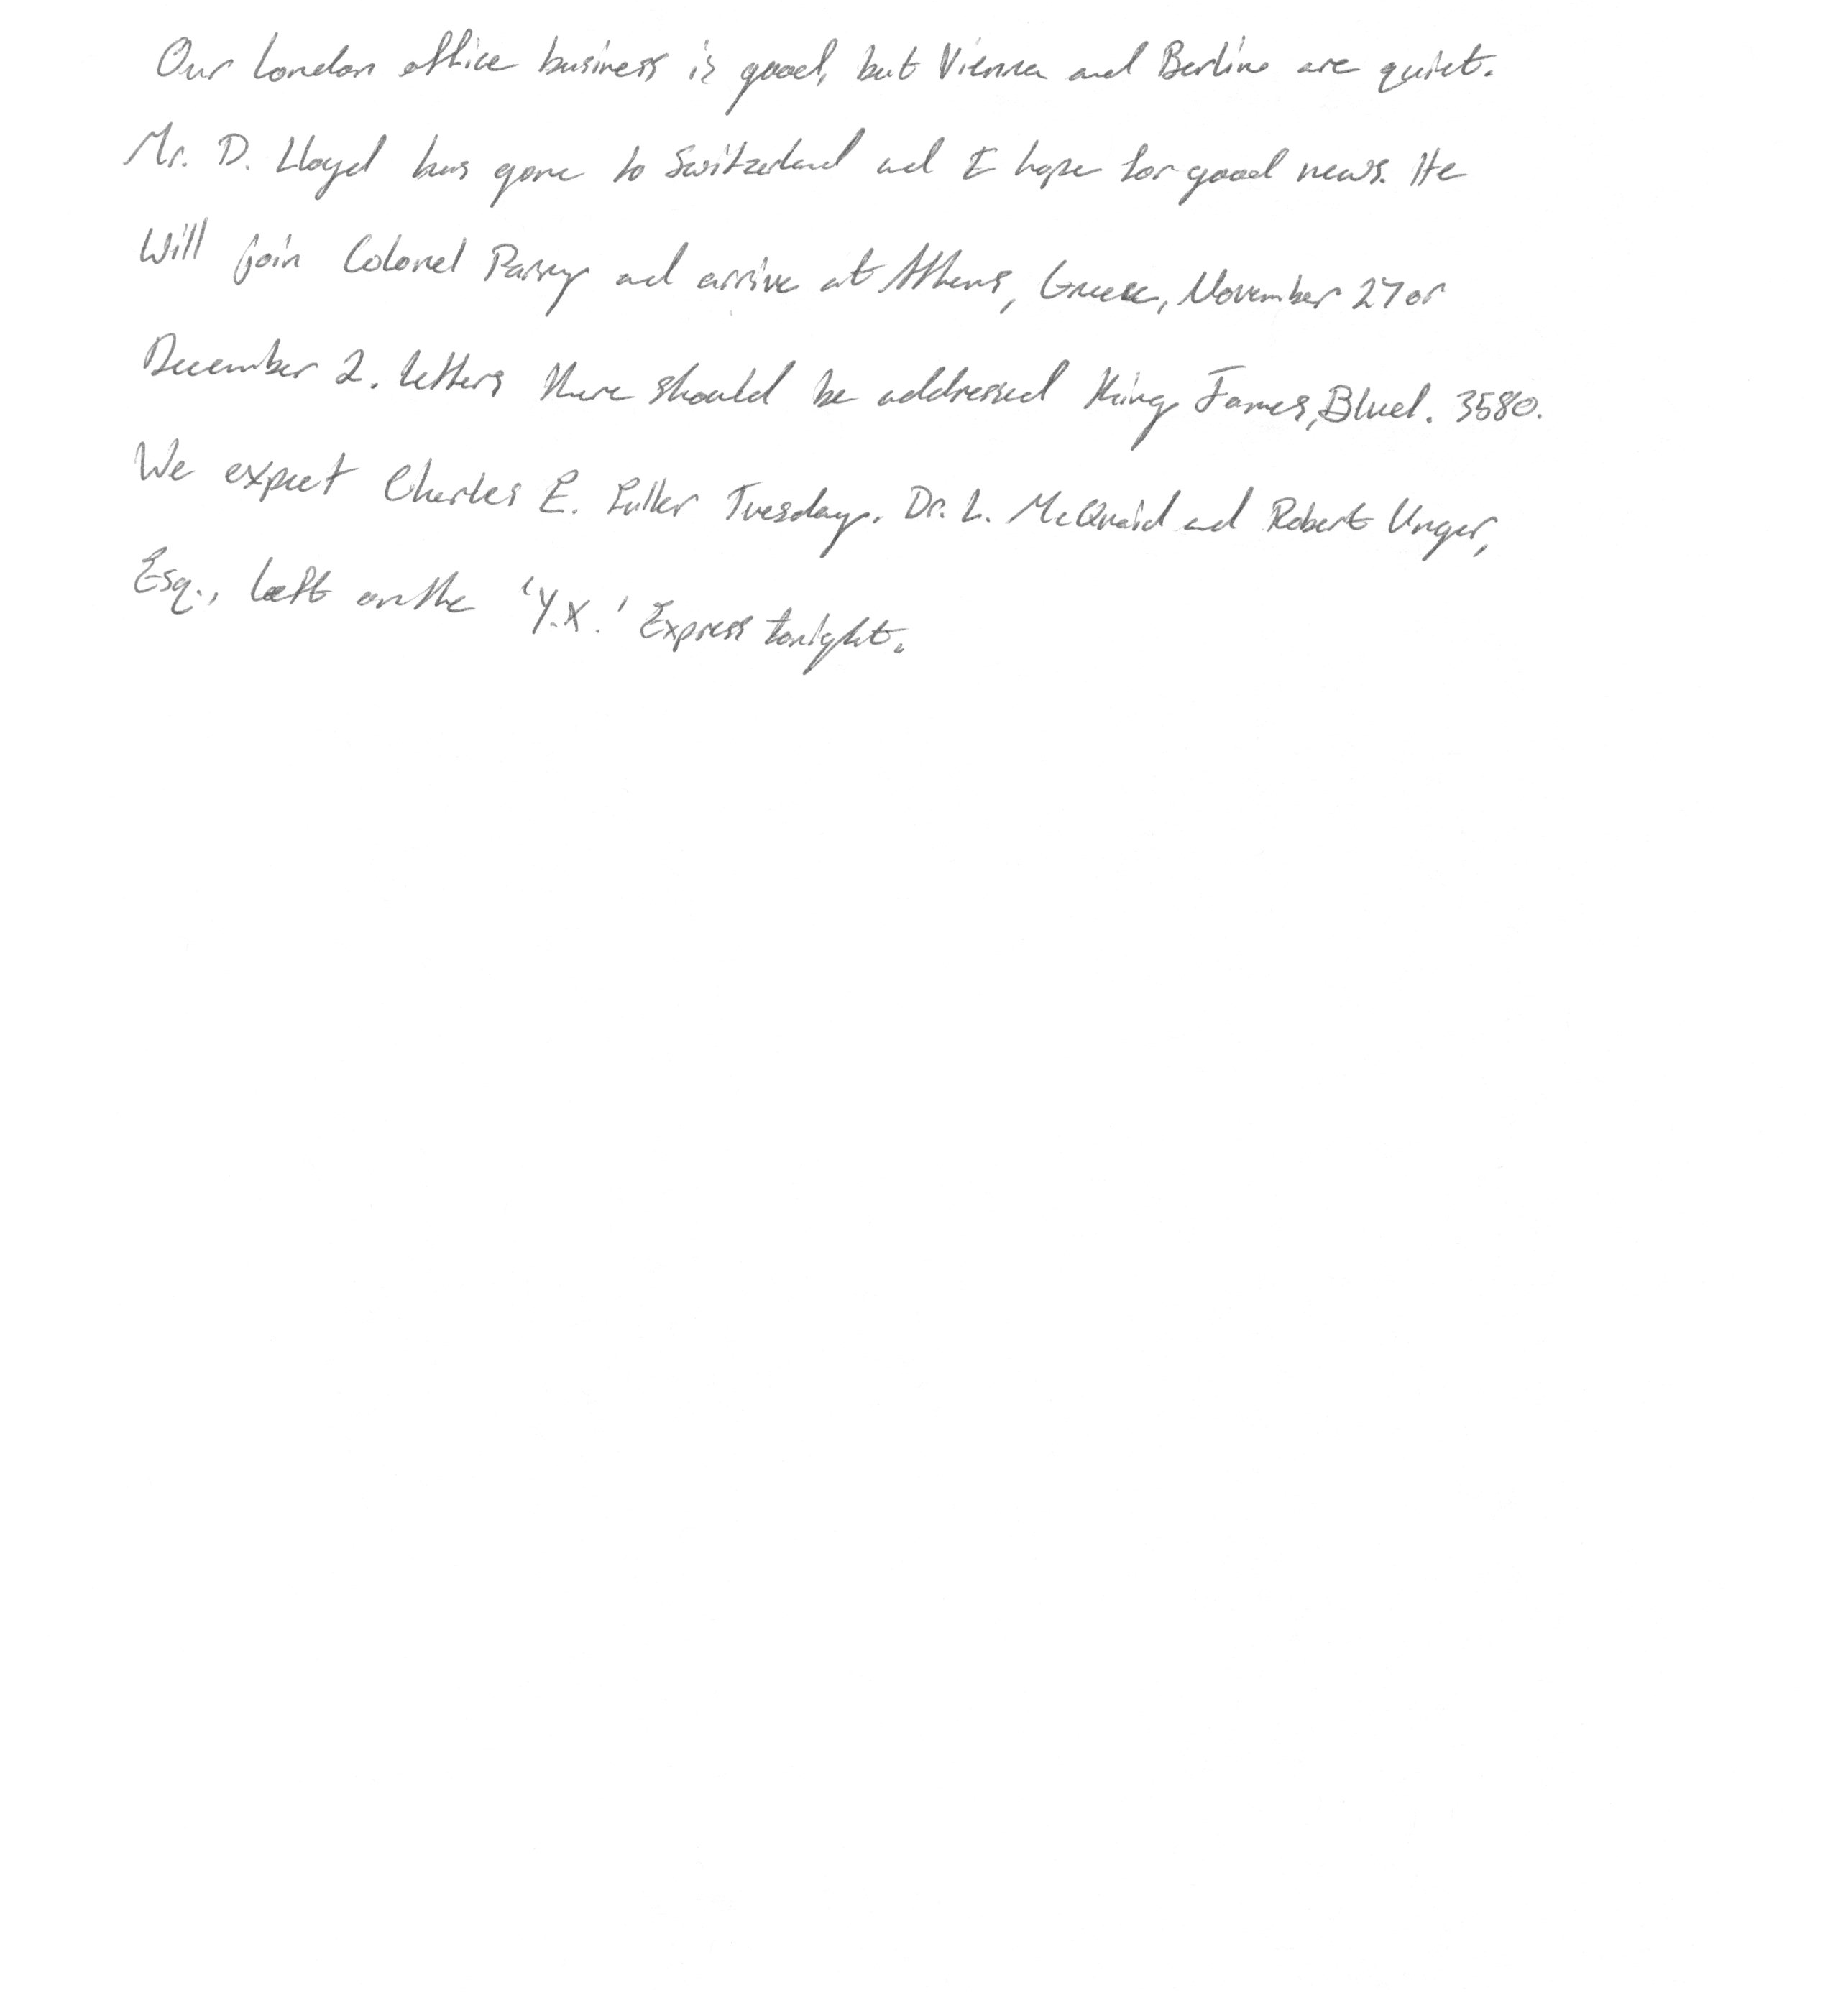 Our London office business is good, but Vienna and Berline are quiet.
Mr. D. Lloyd has gone to Switzerland and I hope for good news. He
Will join Colonel Parry and arrive at Athens, Greece, November 27 or
December 2. Letters there should be addressed King James, Blvd. 3580.
We expect Charles E. Fuller Tuesday. Dr. L. McQuaid and Robert Unger,
Esq., left on the 'Y.X.' Express tonight.